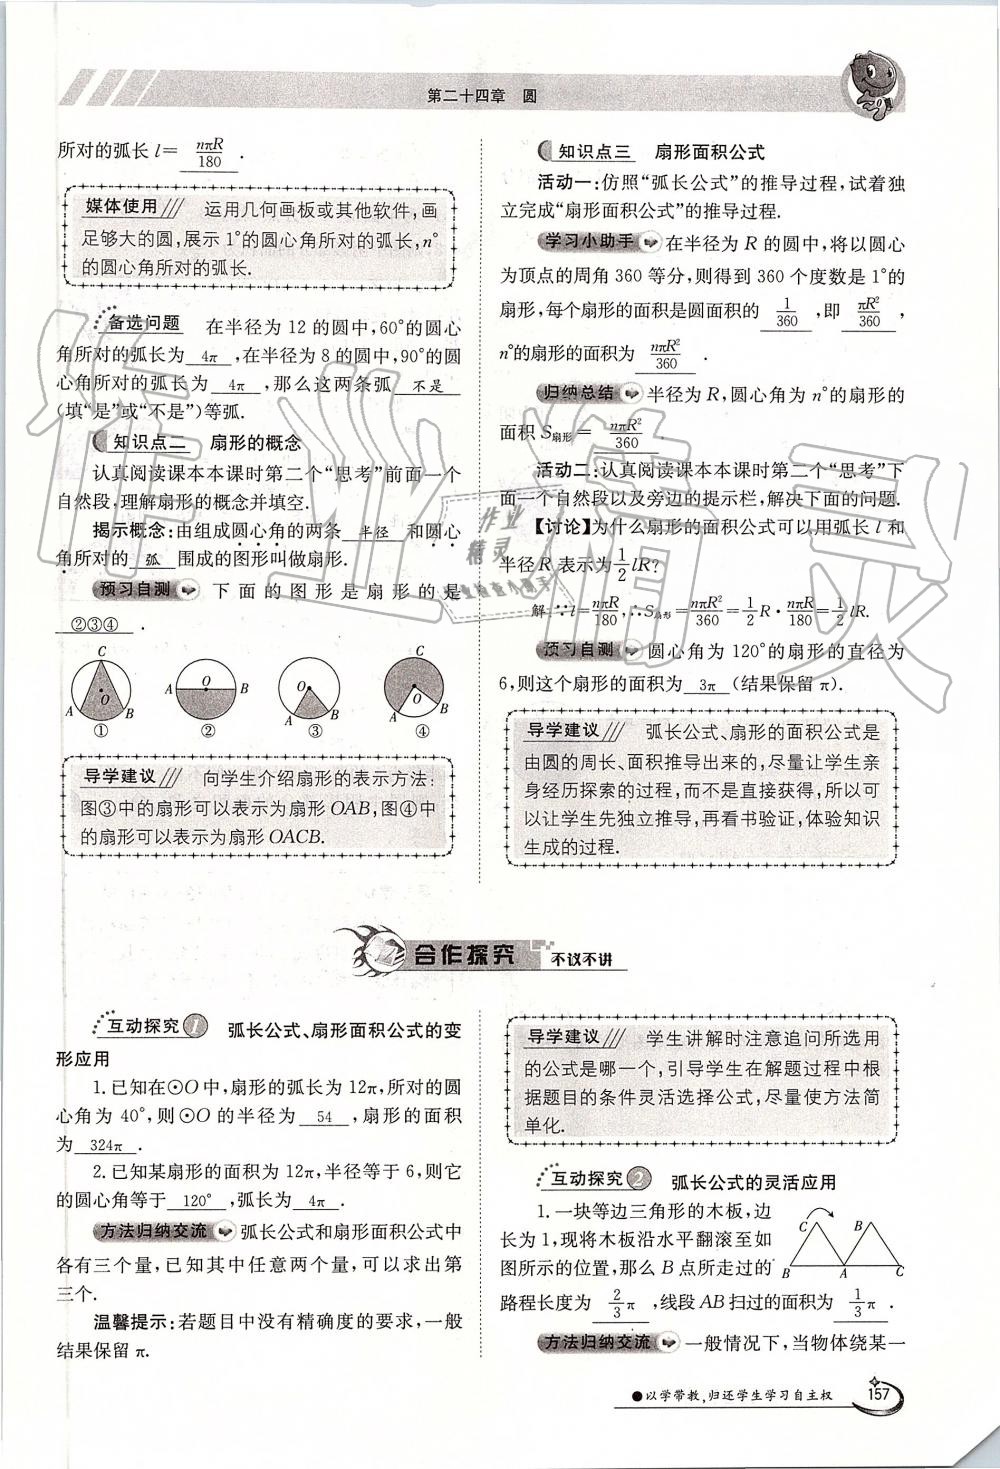 第二十四章 圆
所对的弧长 l= nπR/180 .
媒体使用 运用几何画板或其他软件,画
足够大的圆,展示 1°的圆心角所对的弧长,n°
的圆心角所对的弧长.
备选问题 在半径为 12 的圆中,60°的圆心
角所对的弧长为 4π ,在半径为 8 的圆中,90°的圆
心角所对的弧长为 4π ,那么这两条弧 不是
(填“是”或“不是”)等弧.
知识点二 扇形的概念
认真阅读课本本课时第二个“思考”前面一个
自然段,理解扇形的概念并填空.
揭示概念:由组成圆心角的两条 半径 和圆心
角所对的 弧 围成的图形叫做扇形.
预习自测 下面的图形是扇形的是
②③④ .
C O A B ①
O A B ②
O A B ③
C O A B ④
导学建议 向学生介绍扇形的表示方法:
图③中的扇形可以表示为扇形 OAB,图④中
的扇形可以表示为扇形 OACB.
知识点三 扇形面积公式
活动一:仿照“弧长公式”的推导过程,试着独
立完成“扇形面积公式”的推导过程.
学习小助手 在半径为 R 的圆中,将以圆心
为顶点的周角 360 等分,则得到 360 个度数是 1°的
扇形,每个扇形的面积是圆面积的 1/360 ,即 πR²/360 ,
n°的扇形的面积为 nπR²/360 .
归纳总结 半径为 R,圆心角为 n°的扇形的
面积 S扇形= nπR²/360 .
活动二:认真阅读课本本课时第二个“思考”下
面一个自然段以及旁边的提示栏,解决下面的问题.
【讨论】为什么扇形的面积公式可以用弧长 l 和
半径 R 表示为 1/2 lR?
解:∵l=nπR/180,∴S扇形=nπR²/360=1/2 R·nπR/180=1/2 lR.
预习自测 圆心角为 120°的扇形的直径为
6,则这个扇形的面积为 3π (结果保留 π).
导学建议 弧长公式、扇形的面积公式是
由圆的周长、面积推导出来的,尽量让学生亲
身经历探索的过程,而不是直接获得,所以可
以让学生先独立推导,再看书验证,体验知识
生成的过程.
合作探究 不议不讲
互动探究 1 弧长公式、扇形面积公式的变
形应用
1.已知在⊙O 中,扇形的弧长为 12π,所对的圆
心角为 40°,则⊙O 的半径为 54 ,扇形的面积
为 324π .
2.已知某扇形的面积为 12π,半径等于 6,则它
的圆心角等于 120° ,弧长为 4π .
方法归纳交流 弧长公式和扇形面积公式中
各有三个量,已知其中任意两个量,可以求出第
三个.
温馨提示:若题目中没有精确度的要求,一般
结果保留 π.
导学建议 学生讲解时注意追问所选用
的公式是哪一个,引导学生在解题过程中根
据题目的条件灵活选择公式,尽量使方法简
单化.
互动探究 2 弧长公式的灵活应用
1.一块等边三角形的木板,边
长为 1,现将木板沿水平翻滚至如
图所示的位置,那么 B 点所走过的
路程长度为 2/3 π ,线段 AB 扫过的面积为 1/3 π .
C B
B A C
方法归纳交流 一般情况下,当物体绕某一
●以学带教,归还学生学习自主权
157
作业精灵
作业
精灵